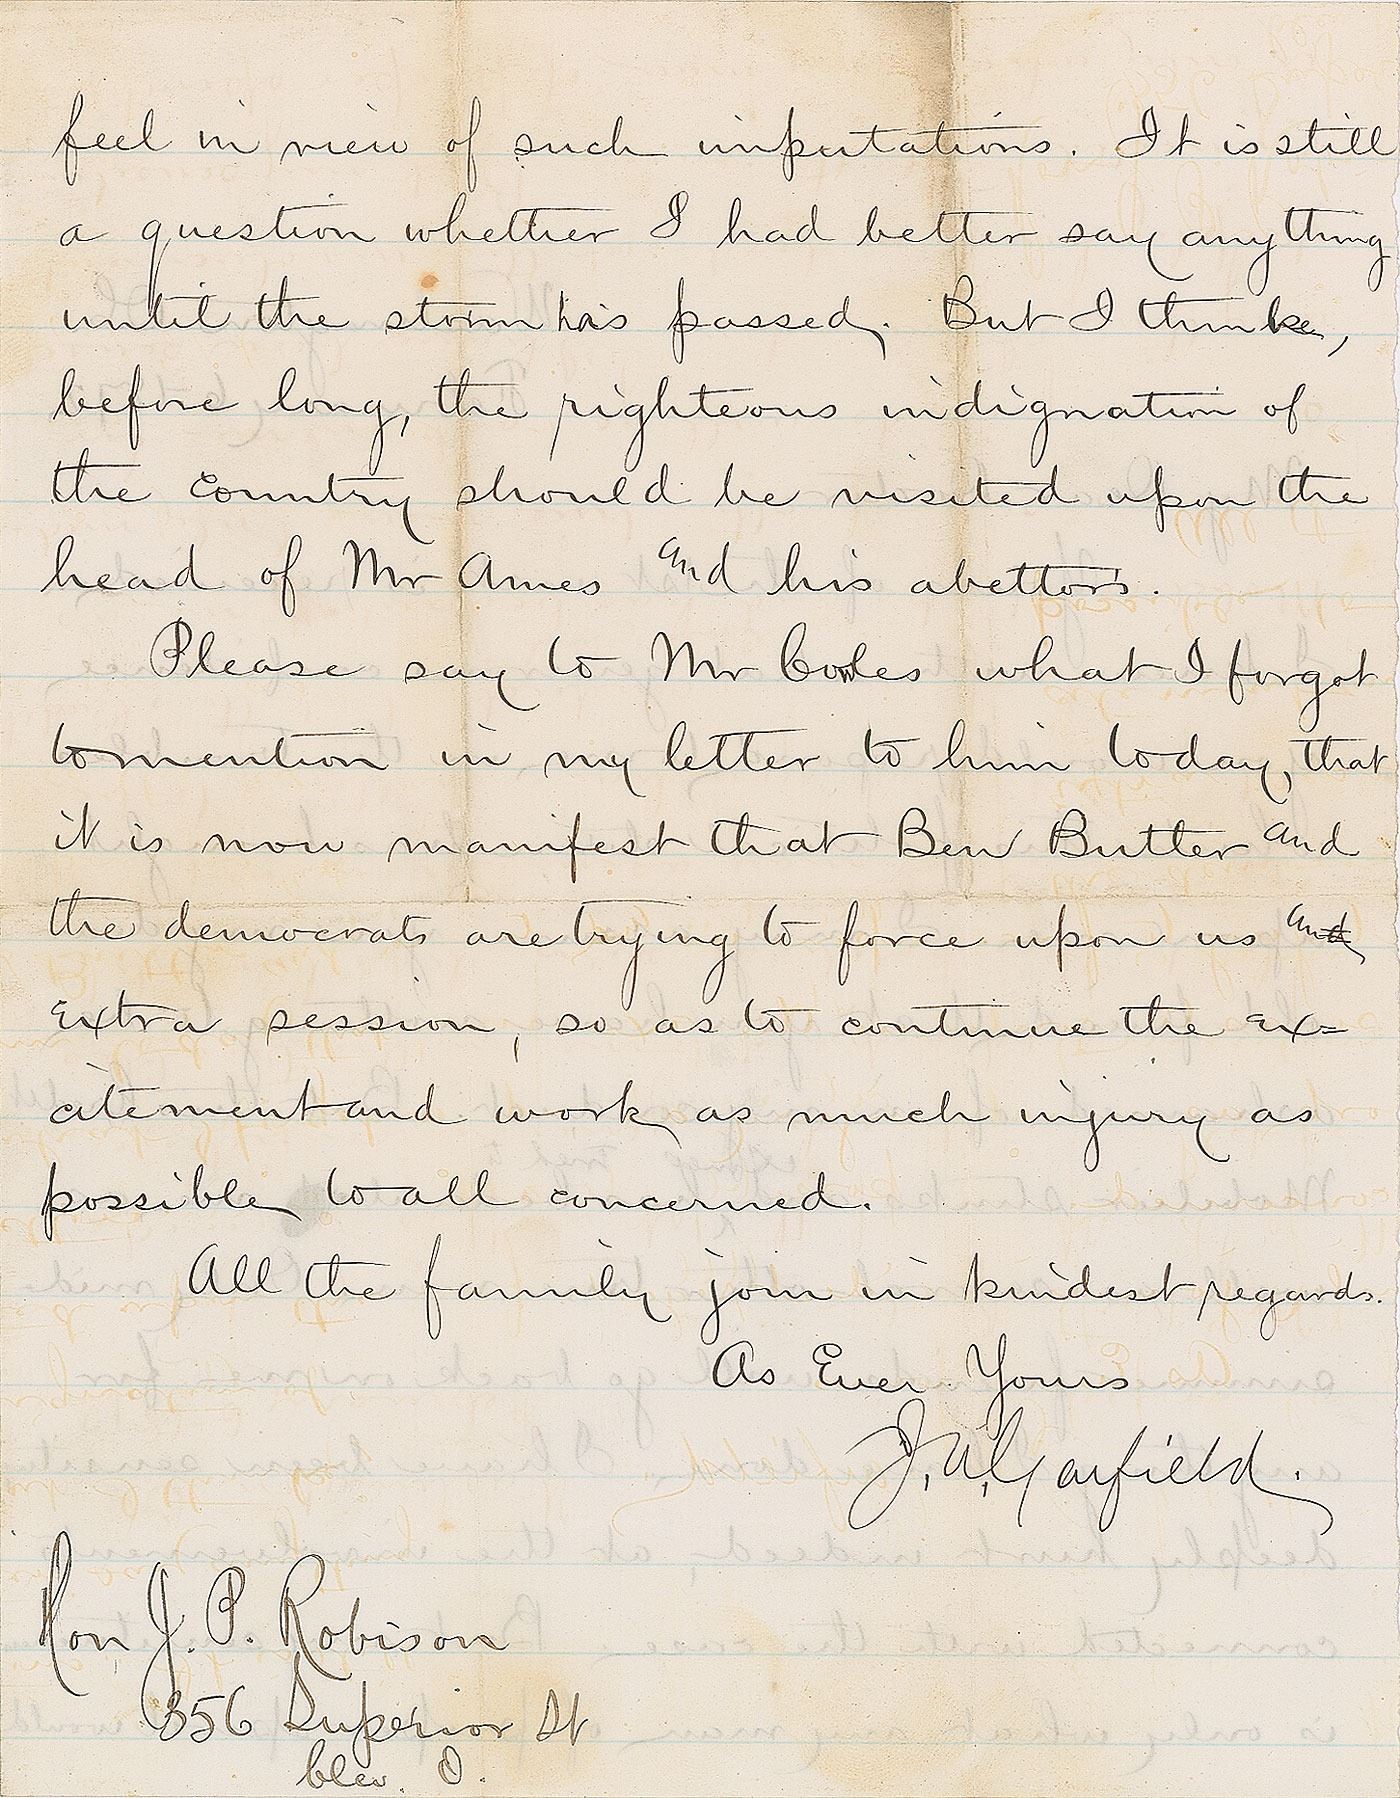 feel in view of such imputations. It is still
a question whether I had better say anything
until the storm has passed. But I think,
before long, the righteous indignation of
the Country should be visited upon the
head of Mr Ames and his abettors.
Please say to Mr Cowles what I forgot
to mention in my letter to him today, that
it is now manifest that Ben Butler and
the democrats are trying to force upon us an
extra session, so as to continue the ex=
citement and work as much injury as
possible to all concerned.
All the family join in kindest regards.
As Ever Yours
J. A. Garfield.
Hon J. P. Robison
356 Superior St
Clev. O.